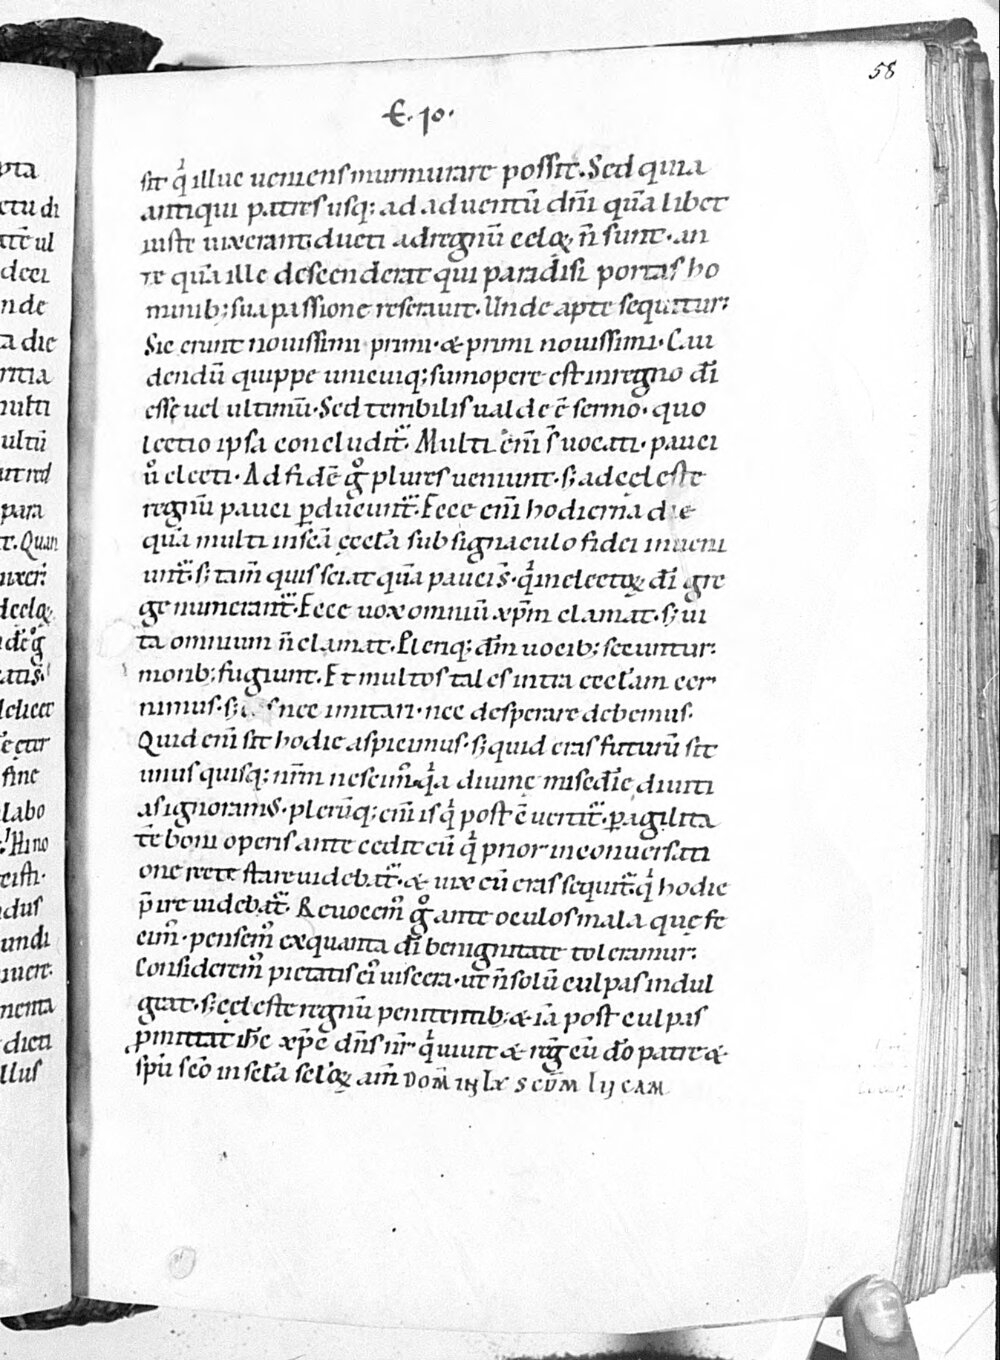 58
E. 10.
sit q illuc ueniens murmurare possit. Sed quia
antiqui patres usq; ad aduentū dn̄i quālibet
iuste uixerant. ducti ad regnū celoꝝ n̄ sunt. an
te quā ille descenderat qui paradisi portas ho
minib; sua passione reserauit. Unde apte sequitur;
Sic erunt nouissimi primi. & primi nouissimi. Cui
dendū quippe unicuiq; sumopere est in regno dī
esse uel ultimū. Sed terribilis ualde ē sermo. quo
lectio ipsa concludit. Multi enī s uocati. pauci
ů electi. Ad fidē gͦ plures ueniunt. s; ad cęleste
regnū pauci ꝑducunt. Ecce enī hodierna die
quā multi in scā ęccła sub signaculo fidei inueni
unt. s; tam̄ quis sciat quā pauci s. q in electoꝝ dī gre
ge numerant. Ecce uox omniū xp̄m clamat. s; ui
ta omnium n̄ clamat. Pleriq; dm̄ uocib; secuntur.
morib; fugiunt. Et multos tales intra eccłam cer
nimus. s; nec imitari. nec desperare debemus.
Quid enī sit hodie aspicimus. s; quid cras futurū sit
unus quisq; nr̄m nescim̄. q a diuinę mise diuiti
as ignoramus. plerūq; enī is q post ē uertit. ꝑ agilita
tē boni operis antecedit eū q prior in conuersati
one recte stare uidebat. & uix eū cras sequit. q hodie
p̄ire uidebat. Reuocem̄ gͦ ante oculos mala quę fe
cim̄. pensem̄ ex quanta dī benignitate toleramur.
Considerem̄ pietatis ei uiscera. ut n̄ solū culpas indul
geat. s; cęleste regnū penitentib; & iā post culpas
ꝓmittat ihc̄ xp̄c dn̄s nr̄ q uiuit & reg̅ cū dō patre &
sp̄u scō in sc̄ła sc̄łoꝝ am̄ DOM̄ IN LX SCDM LUCAM